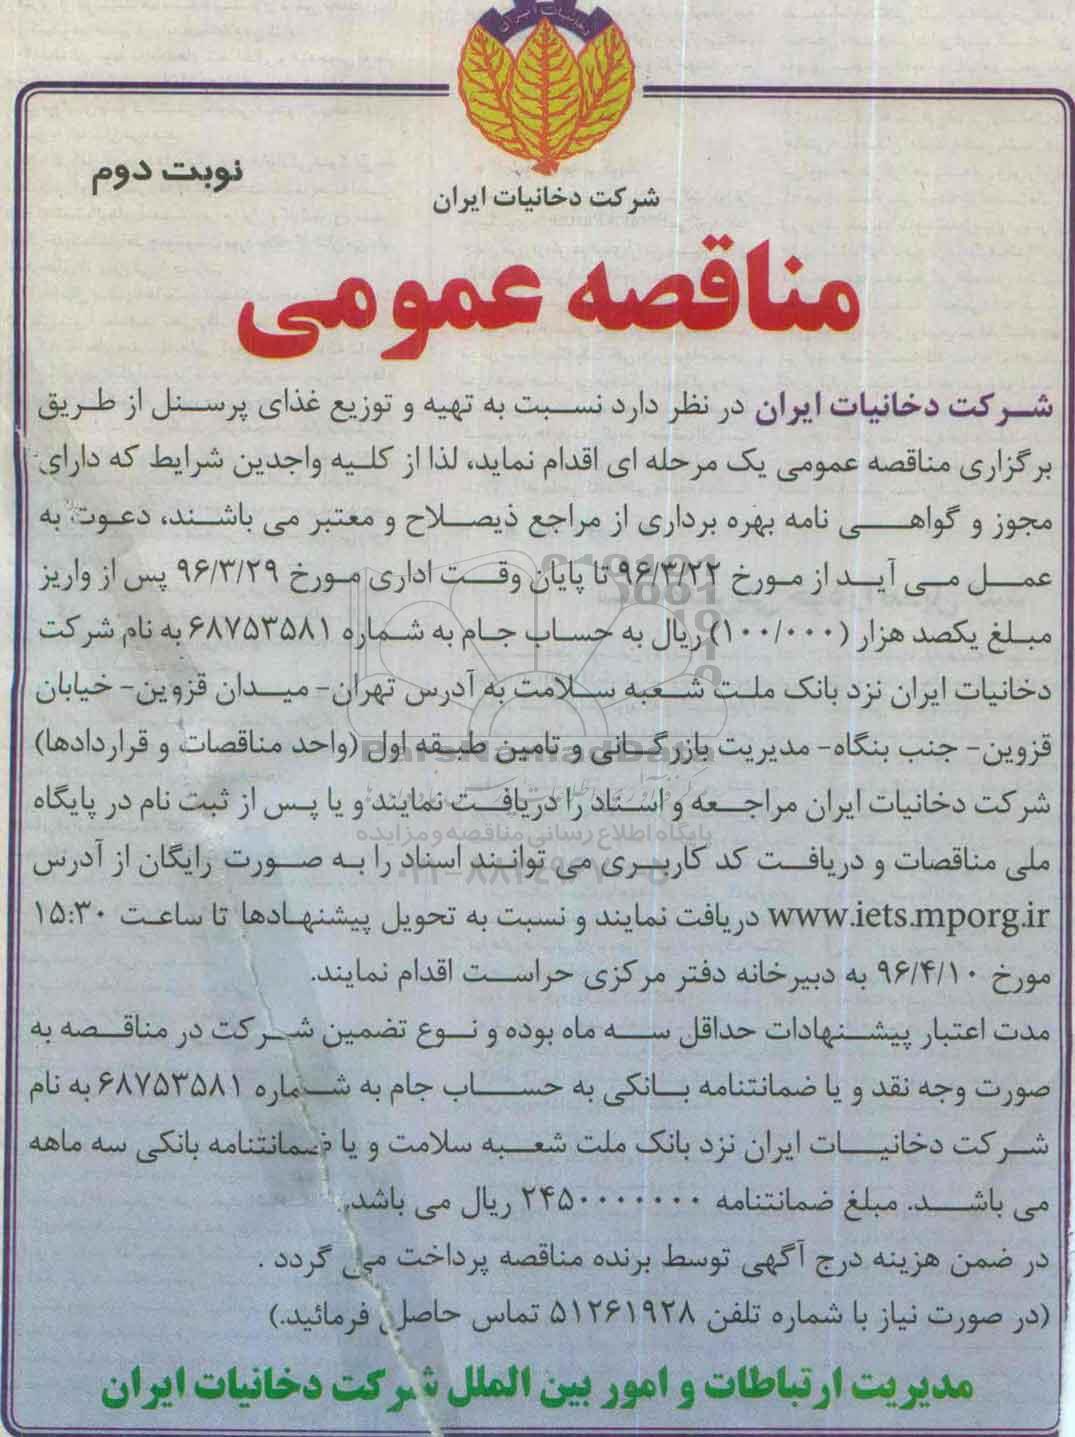 دخانیات ایران
نوبت دوم
شرکت دخانیات ایران
مناقصه عمومی
شرکت دخانیات ایران در نظر دارد نسبت به تهیه و توزیع غذای پرسنل از طریق
برگزاری مناقصه عمومی یک مرحله ای اقدام نماید، لذا از کلیه واجدین شرایط که دارای
مجوز و گواهی نامه بهره برداری از مراجع ذیصلاح و معتبر می باشند، دعوت به
عمل می آید از مورخ ۹۶/۳/۲۲ تا پایان وقت اداری مورخ ۹۶/۳/۲۹ پس از واریز
مبلغ یکصد هزار (۱۰۰/۰۰۰) ریال به حساب جام به شماره ۶۸۷۵۳۵۸۱ به نام شرکت
دخانیات ایران نزد بانک ملت شعبه سلامت به آدرس تهران- میدان قزوین- خیابان
قزوین- جنب بنگاه- مدیریت بازرگانی و تامین طبقه اول (واحد مناقصات و قراردادها)
شرکت دخانیات ایران مراجعه و اسناد را دریافت نمایند و یا پس از ثبت نام در پایگاه
ملی مناقصات و دریافت کد کاربری می توانند اسناد را به صورت رایگان از آدرس
www.iets.mporg.ir دریافت نمایند و نسبت به تحویل پیشنهادها تا ساعت ۱۵:۳۰
مورخ ۹۶/۴/۱۰ به دبیرخانه دفتر مرکزی حراست اقدام نمایند.
مدت اعتبار پیشنهادات حداقل سه ماه بوده و نوع تضمین شرکت در مناقصه به
صورت وجه نقد و یا ضمانتنامه بانکی به حساب جام به شماره ۶۸۷۵۳۵۸۱ به نام
شرکت دخانیات ایران نزد بانک ملت شعبه سلامت و یا ضمانتنامه بانکی سه ماهه
می باشد. مبلغ ضمانتنامه ۲۴۵۰۰۰۰۰۰۰ ریال می باشد.
در ضمن هزینه درج آگهی توسط برنده مناقصه پرداخت می گردد .
(در صورت نیاز با شماره تلفن ۵۱۲۶۱۹۲۸ تماس حاصل فرمائید.)
مدیریت ارتباطات و امور بین الملل شرکت دخانیات ایران
ParsNamadData
پایگاه اطلاع رسانی مناقصه و مزایده